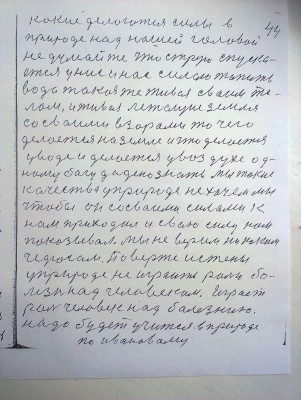 какие делаются силы в 44
природе над нашей головой
не думайте что струю спуска-
ется у нис и нас силою топить
вода такая же живая своим те-
лом, и живая летающе земля
со своими взорами то чего
делается на земле и что делается
у воде и делается у воздухе од-
ному богу дадено знать мы такие
качества у природе не хочем мы
чтобы он со своими силами к
нам приходил и свою силу нам
показывал. мы не верим никаким
чедюсам. Поверте истены
у природе не играит роли бо-
лизнь над человеком. Играет
рол человек над болезнию.
надо будет учится в природе
по ивановаму